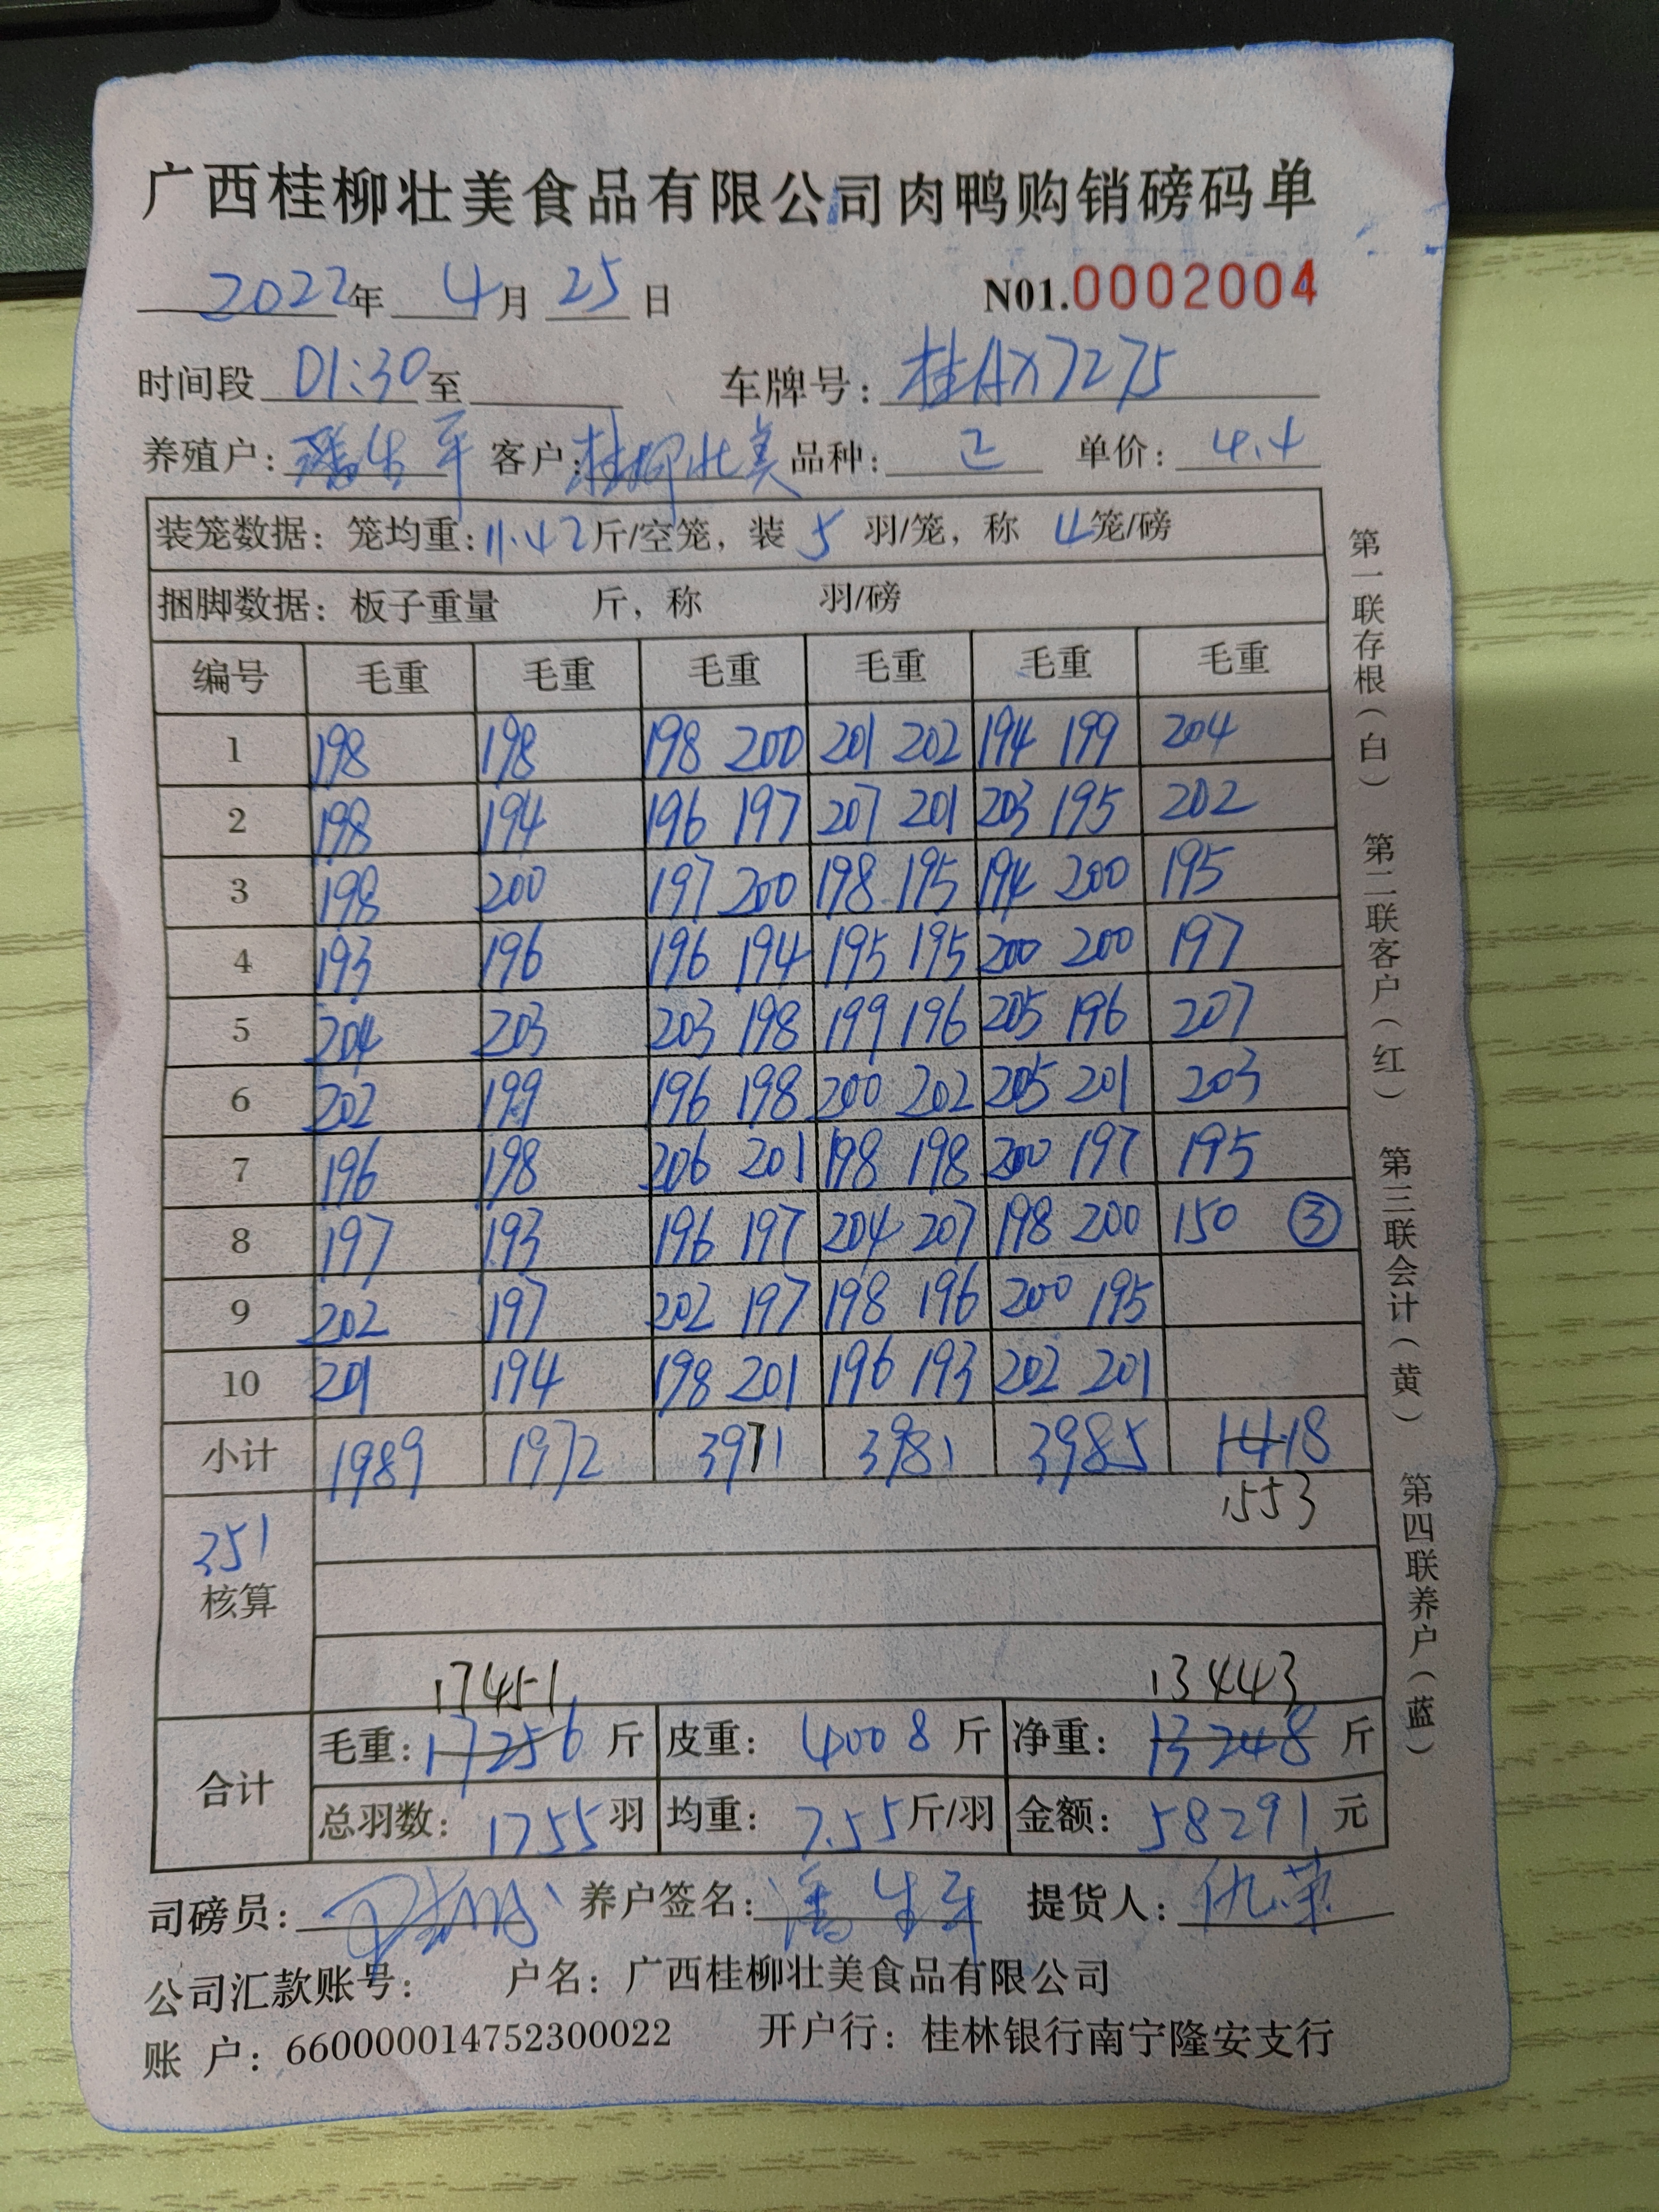 广西桂柳壮美食品有限公司肉鸭购销磅码单
2022年 4月 25日 N01.0002004
时间段 01:30 至 车牌号: 桂AX7275
养殖户: 潘生平 客户: 桂柳壮美 品种: 二 单价: 4.4
装笼数据: 笼均重: 11.42 斤/空笼, 装 5 羽/笼, 称 4 笼/磅
捆脚数据: 板子重量 斤, 称 羽/磅
编号 毛重 毛重 毛重 毛重 毛重 毛重
1 198 198 198 200 201 202 194 199 204
2 198 194 196 197 207 201 203 195 202
3 198 200 197 200 198 195 194 200 195
4 193 196 196 194 195 195 200 200 197
5 204 203 203 198 199 196 205 196 207
6 202 199 196 198 200 202 205 201 203
7 196 198 206 201 198 198 200 197 195
8 197 193 196 197 204 207 198 200 150 ③
9 202 197 202 197 198 196 200 195
10 201 194 198 201 196 193 202 201
小计 1989 1972 3971 3981 3985 1418
1553
351
核算
17451 13443
合计
毛重: 17256 斤 皮重: 4008 斤 净重: 13248 斤
总羽数: 1755 羽 均重: 7.55 斤/羽 金额: 58291 元
司磅员: 养户签名: 潘生平 提货人: 仇荣
公司汇款账号: 户名: 广西桂柳壮美食品有限公司
账 户: 660000014752300022 开户行: 桂林银行南宁隆安支行
第一联存根(白) 第二联客户(红) 第三联会计(黄) 第四联养户(蓝)